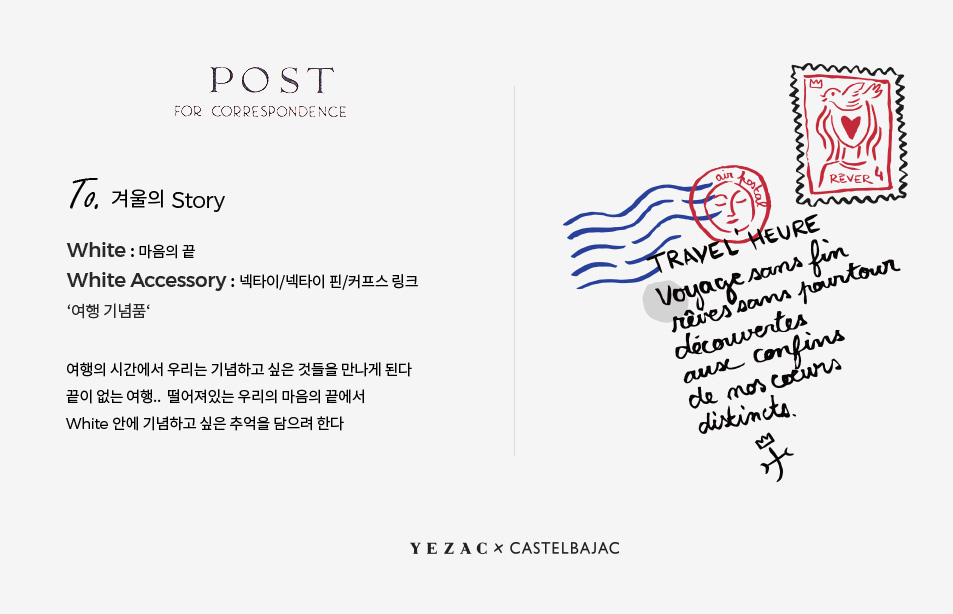 POST
FOR CORRESPONDENCE
To. 겨울의 Story
White : 마음의 끝
White Accessory : 넥타이/넥타이 핀/커프스 링크
‘여행 기념품‘
여행의 시간에서 우리는 기념하고 싶은 것들을 만나게 된다
끝이 없는 여행.. 떨어져있는 우리의 마음의 끝에서
White 안에 기념하고 싶은 추억을 담으려 한다
RÊVER 4
air postal
TRAVEL'HEURE
Voyage sans fin
rêves sans pourtour
découvertes
aux confins
de nos cœurs
distincts.
YEZAC × CASTELBAJAC